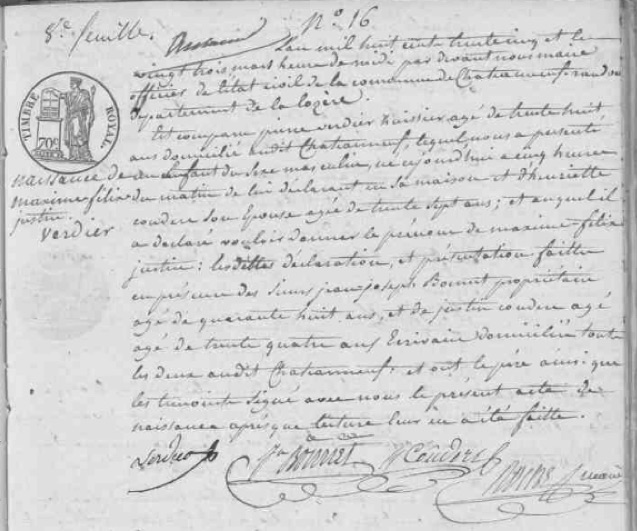 8e feuille.
No 16
L'an mil huit cent trente cinq et le
vingt trois mars heure de midi par devant nous maire
officier de l'état civil de la commune de Chateauneuf randon
département de la lozère.
TIMBRE ROYAL
70c
Est comparu pierre verdier huissier agé de trente huit
ans domicilié audit Chateauneuf, lequel nous a présenté
naissance de
maxime felix
justin
Verdier
un enfant du sexe masculin, né ce jourd'hui a cinq heures
du matin de lui declarant en sa maison et d'henriette
couderc son Epouse agée de trente sept ans ; et auquel il
a déclaré vouloir donner le prenom de maxime felix
justin : les dittes déclaration, et présentation faittes
en présence des sieurs jean joseph Bonnet propriétaire
agé de quarante huit ans, et de justin couderc agé
agé de trente quatre ans Ecrivain domiciliés toute
les deux audit Chateauneuf ; et ont le père ainsi que
les temoins signé avec nous le présent acte de
naissance après que lecture leur en a été faitte.
Verdier Bonnet Couderc
maire